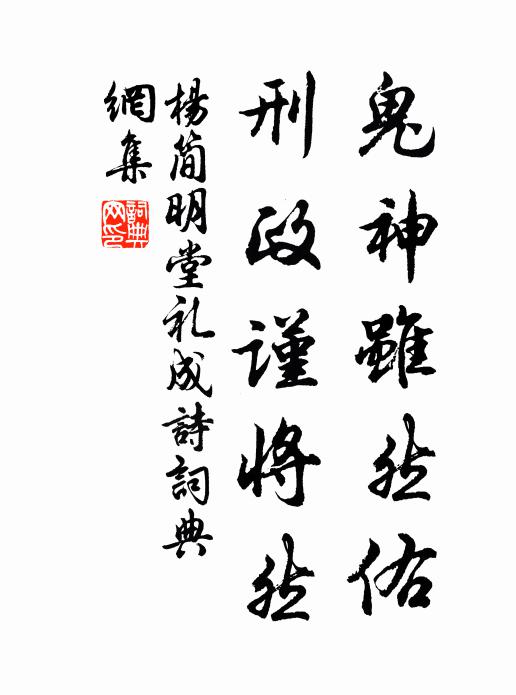 鬼神雖然佑
刑政謹將然
楊简明堂礼成詩詞典
網集
詞典網印